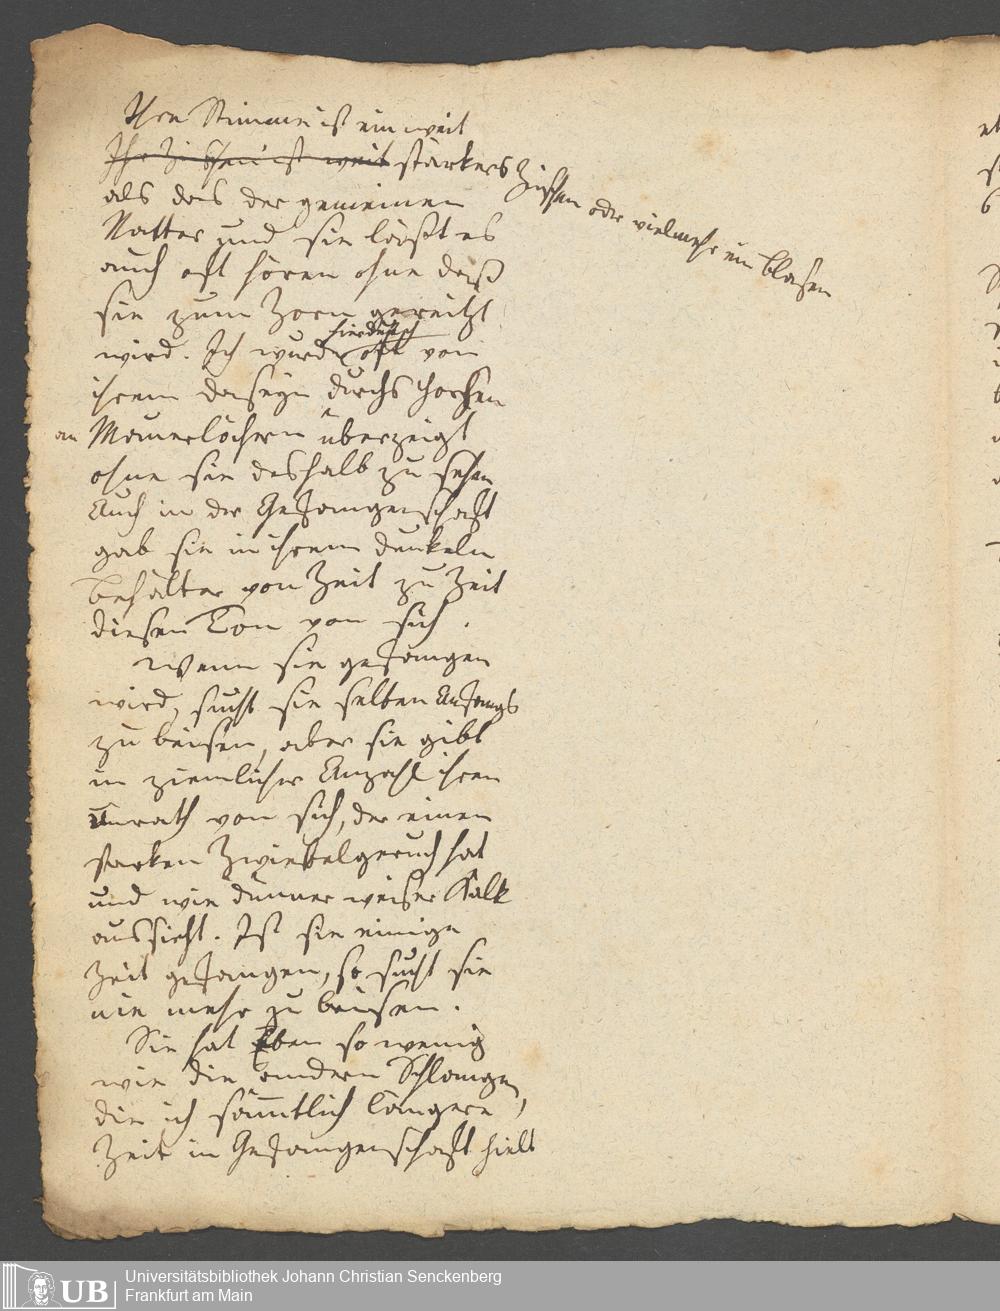 Ihre Stimme ist ein weit
Ihr Zischen ist weit stärkers Zischen oder vielmehr ein blasen
als das der gemeinen
Natter und sie läßt es
auch oft hören ohne daß
sie zum Zorn gereitzt
wird. Ich wurde hierdurch oft von
ihrem daseyn durchs horchen
an Mauerlöchern überzeigt
ohne sie deshalb zu sehen
Auch in der Gefangenschaft
gab sie in ihrem dunkeln
behälter von Zeit zu Zeit
diesen Ton von sich.
Wenn sie gefangen
wird, sucht sie selten Anfangs
zu beisen, aber sie gibt
in ziemlicher Anzahl ihren
Unrath von sich, der einen
starken Zwiebelgeruch hat
und wie dünner weiser Kalk
aussieht. Ist sie einige
Zeit gefangen, so sucht sie
nie mehr zu beisen.
Sie hat eben so wenig
wie die andern Schlangen,
die ich sämtlich längere
Zeit in Gefangenschaft hielt
Universitätsbibliothek Johann Christian Senckenberg
Frankfurt am Main
UB